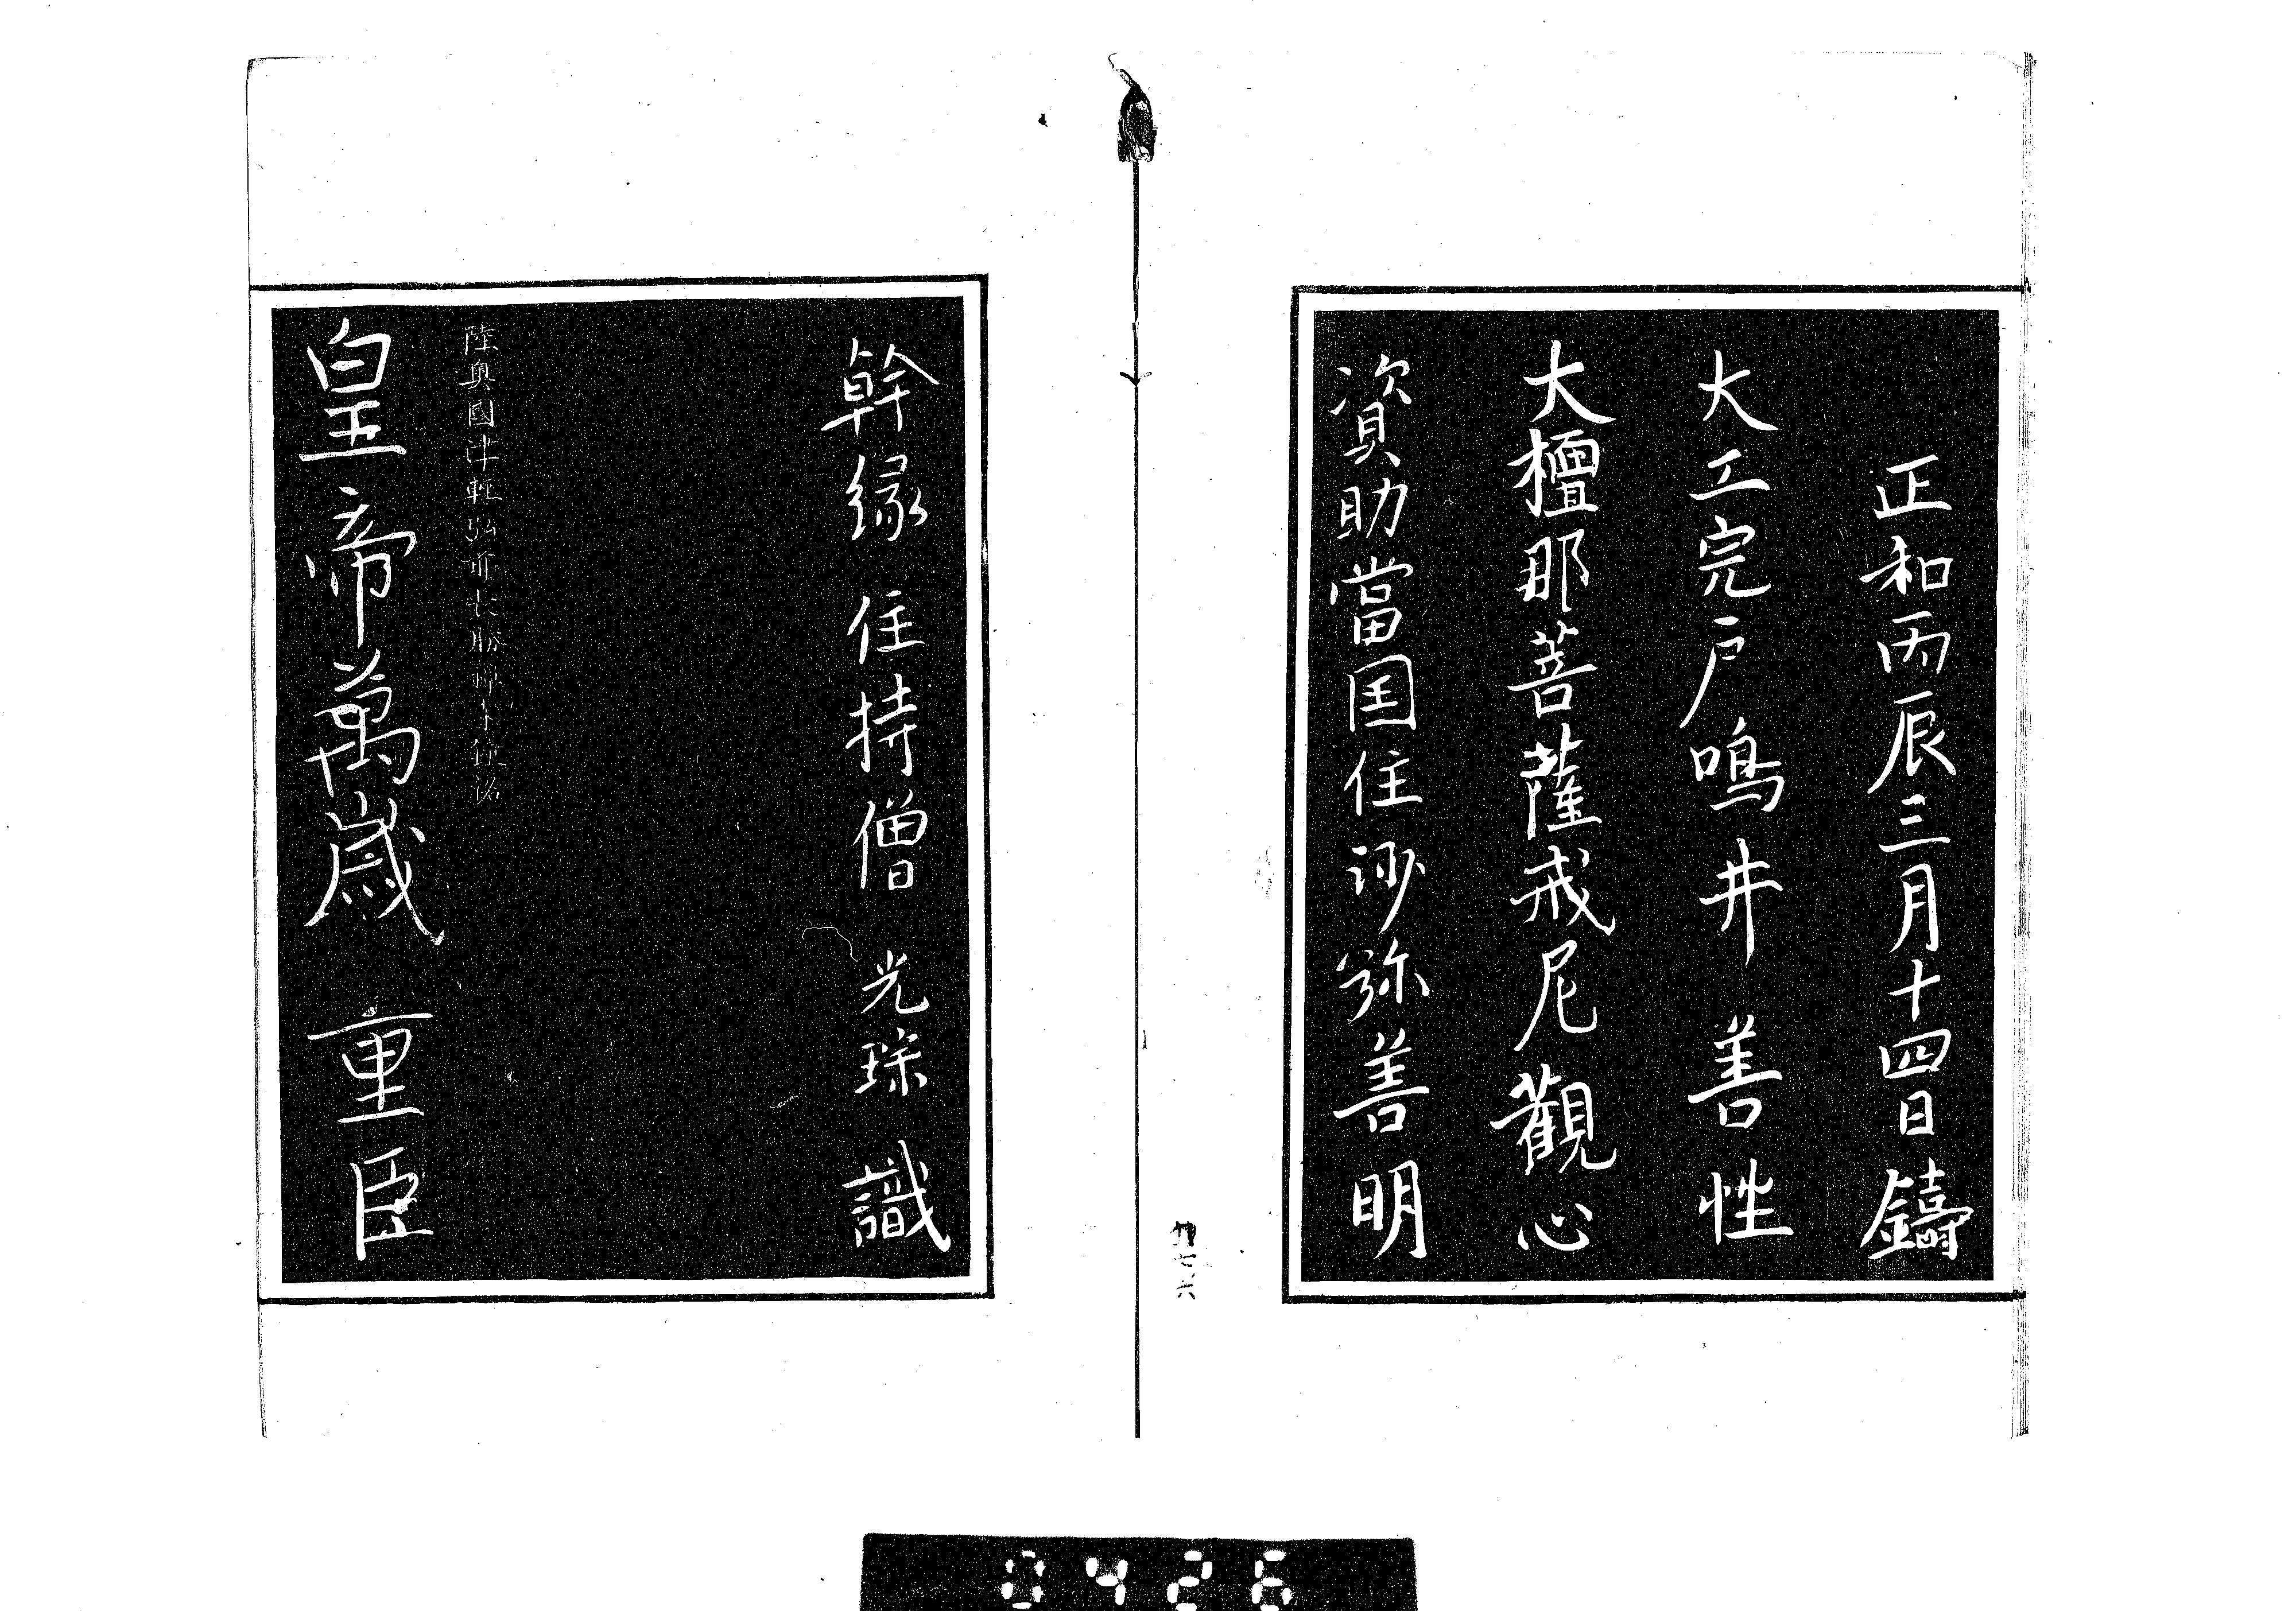 正和丙辰三月十四日鑄
大工完戸鳴井善性
大檀那菩薩戒尼觀心
資助當国住沙弥善明
幹縁住持僧光琛識
陸奥國津軽弘前長勝
皇帝萬歳重臣
0426